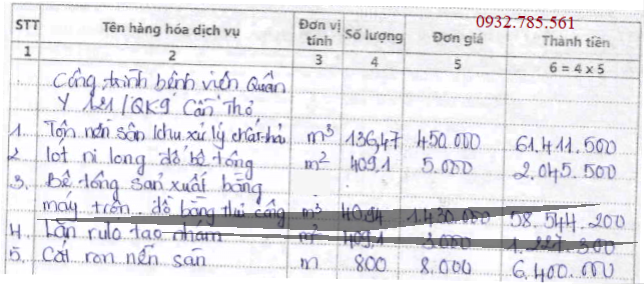 0932.785.561
STT Tên hàng hóa dịch vụ Đơn vị tính Số lượng Đơn giá Thành tiền
1 2 3 4 5 6 = 4 x 5
Công trình bệnh viện Quân
Y 121/QK9 Cần Thơ
1. Tôn nền sân khu xử lý chất thải m³ 136,47 450.000 61.411.500
2 lót ni lông đổ bê tông m² 409,1 5.000 2.045.500
3. Bê tông sản xuất bằng
máy trộn đổ bằng thủ công m³ 40,94 1.430.000 58.544.200
4. Lăn rulo tạo nhám m² 409,1 3.000 1.227.300
5. Cắt ron nền sân m 800 8.000 6.400.000